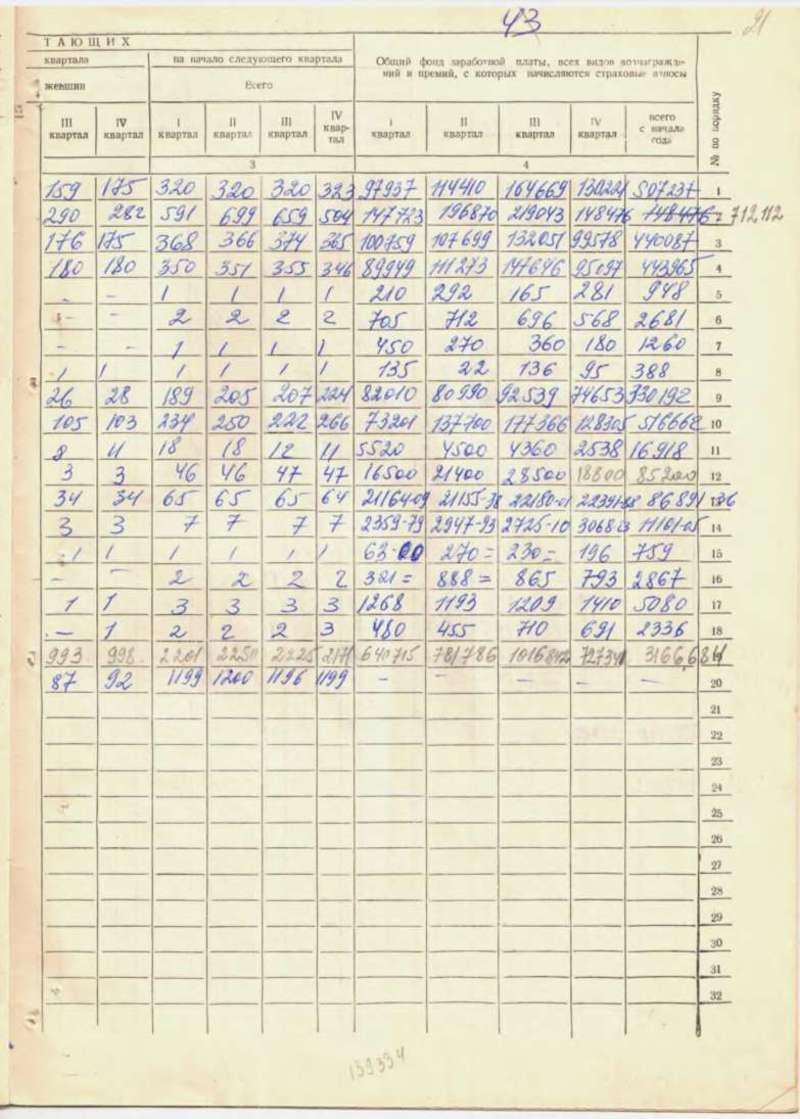 43
21
ТАЮЩИХ
квартала на начало следующего квартала Общий фонд заработной платы, всех видов вознагражде-
ний и премий, с которых начисляются страховые взносы
женщин Всего № по порядку
III квартал IV квартал I квартал II квартал III квартал IV квар-тал I квартал II квартал III квартал IV квартал всего с начала года
3 4
159 175 320 320 320 323 97937 114410 164669 130221 507237 1
290 282 591 699 659 504 147723 196870 219043 148476 148476 2 712,112
176 175 368 366 374 365 100759 107699 132051 99578 440087 3
180 180 350 351 355 346 89949 111273 147646 95097 443965 4
- - 1 1 1 1 210 292 165 281 948 5
- - 2 2 2 2 705 712 696 568 2681 6
- - 1 1 1 1 450 270 360 180 1260 7
1 1 1 1 1 1 135 22 136 95 388 8
26 28 189 205 207 224 82010 80990 92539 74653 330192 9
105 103 234 250 222 266 73201 137700 177366 128305 516662 10
8 11 18 18 12 11 5520 4500 4360 2538 16918 11
3 3 46 46 47 47 16500 21400 28500 18800 85200 12
34 34 65 65 65 64 21164-09 21155-38 22180-01 86891 36 13
3 3 7 7 7 7 2359-79 2947-93 2725-10 11101-05 14
1 1 1 1 1 1 63-00 270= 230= 196 759 15
- - 2 2 2 2 321= 888= 865 793 2867 16
1 1 3 3 3 3 1268 1193 1209 1410 5080 17
- 1 2 2 2 3 480 455 710 691 2336 18
993 998 2201 2250 2225 2171 640715 781786 1016842 727341 3166,684 19
87 92 1199 1200 1196 1199 - - - - - 20
21
22
23
24
25
26
27
28
29
30
31
32
139394